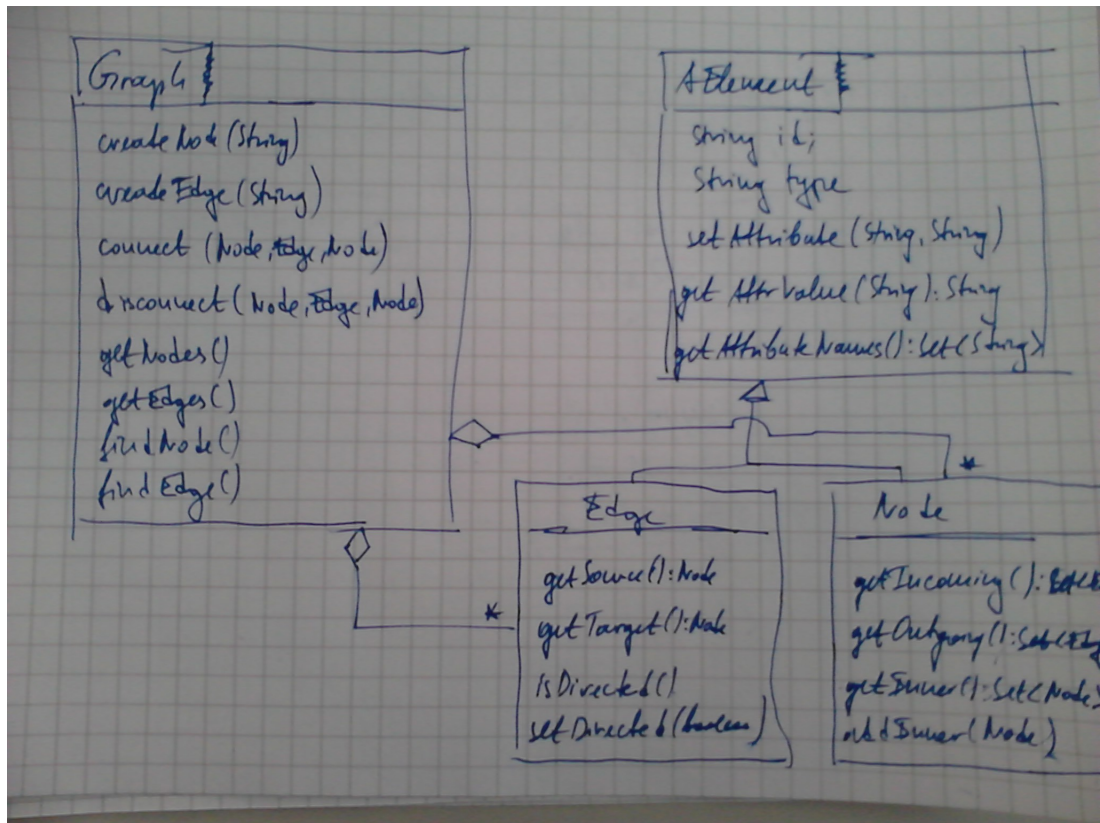 Graph
createNode(String)
createEdge(String)
connect (Node,Edge,Node)
disconnect(Node,Edge,Node)
getNodes()
getEdges()
findNode()
findEdge()
AElement
String id;
String type
setAttribute(String,String)
getAttrValue(String):String
getAttributeNames():Set<String>
*
*
Edge
getSource():Node
getTarget():Node
isDirected()
setDirected(boolean)
Node
getIncoming():Set<E
getOutgoing():Set<Edg
getInner():Set<Node>
addInner(Node)